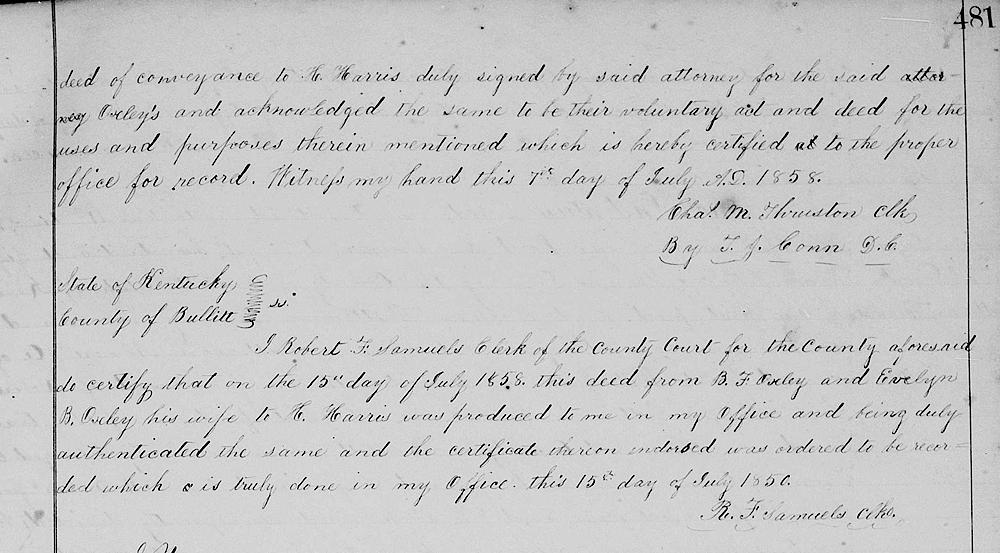 481
deed of conveyance to H. Harris duly signed by said attorney for the said attor-
ney Oxley's and acknowledged the same to be their voluntary act and deed for the
uses and purposes therein mentioned which is hereby certified at to the proper
office for record. Witness my hand this 7th day of July A.D. 1858.
Chas. M. Thruston Clk
By T. J. Conn D.C
State of Kentucky
County of Bullitt ss.
I Robert F. Samuels Clerk of the County Court for the County aforesaid
do certify that on the 15th day of July 1858. this deed from B. F Oxley and Evelyn
B. Oxley his wife to H. Harris was produced to me in my Office and being duly
authenticated the same and the certificate thereon indorsed was ordered to be recor=
ded which is truly done in my Office. this 15th day of July 1858.
R. F. Samuels Clk.